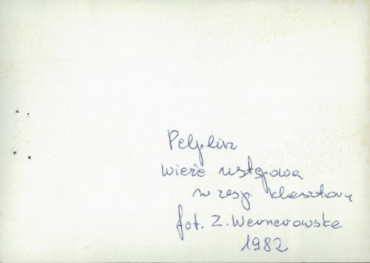 Pelplin
wieża ustępowa
w zesp. klasztorn
fot. Z. Wernerowska
1982